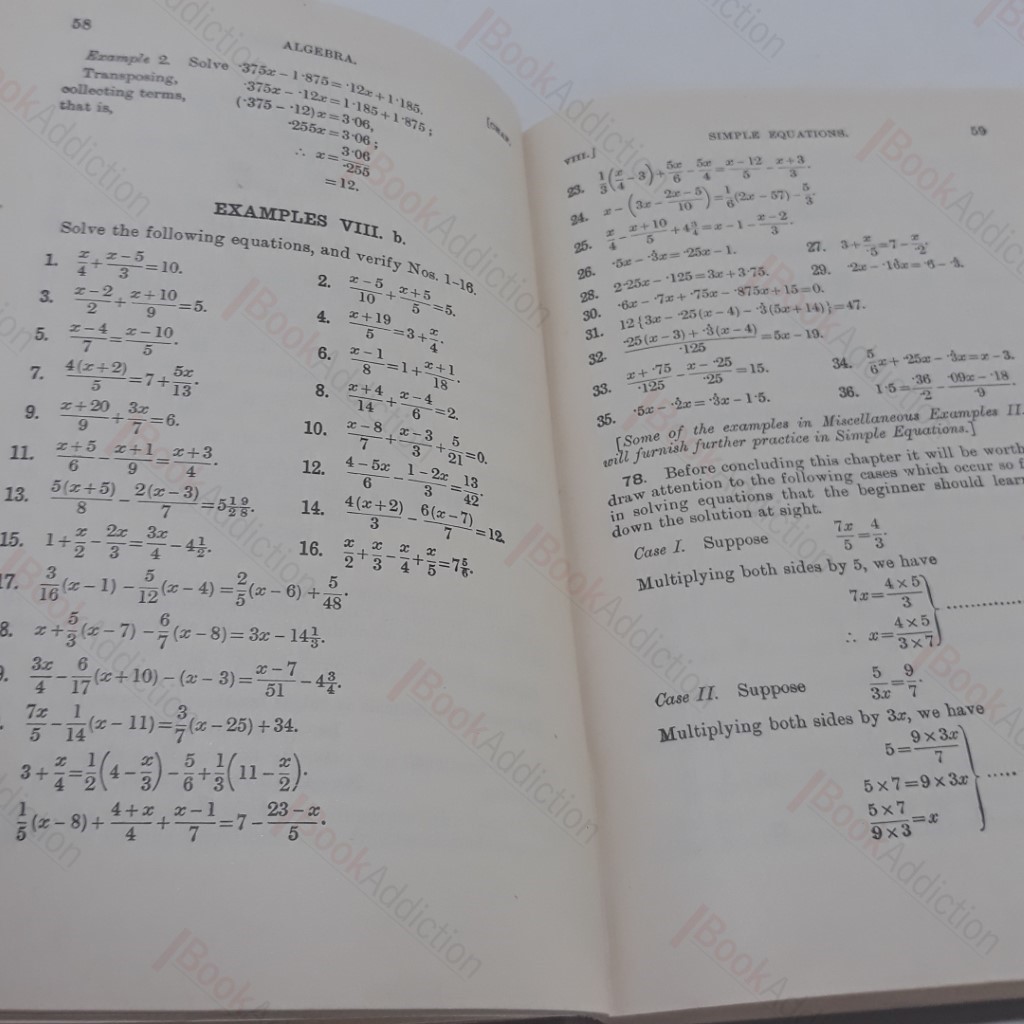 58
ALGEBRA.
[CHAP.
Example 2. Solve ·375x − 1·875 = ·12x + 1·185.
Transposing, ·375x − ·12x = 1·185 + 1·875;
collecting terms, (·375 − ·12)x = 3·06,
that is, ·255x = 3·06;
∴ x = 3·06/·255
= 12.
EXAMPLES VIII. b.
Solve the following equations, and verify Nos. 1–16.
1. x/4 + (x−5)/3 = 10.
2. (x−5)/10 + (x+5)/5 = 5.
3. (x−2)/2 + (x+10)/9 = 5.
4. (x+19)/5 = 3 + x/4.
5. (x−4)/7 = (x−10)/5.
6. (x−1)/8 = 1 + (x+1)/18.
7. 4(x+2)/5 = 7 + 5x/13.
8. (x+4)/14 + (x−4)/6 = 2.
9. (x+20)/9 + 3x/7 = 6.
10. (x−8)/7 + (x−3)/3 + 5/21 = 0.
11. (x+5)/6 − (x+1)/9 = (x+3)/4.
12. (4−5x)/6 − (1−2x)/3 = 13/42.
13. 5(x+5)/8 − 2(x−3)/7 = 5 19/28.
14. 4(x+2)/3 − 6(x−7)/7 = 12.
15. 1 + x/2 − 2x/3 = 3x/4 − 4½.
16. x/2 + x/3 − x/4 + x/5 = 7⅚.
17. 3/16(x−1) − 5/12(x−4) = 2/5(x−6) + 5/48.
8. x + 5/3(x−7) − 6/7(x−8) = 3x − 14⅓.
3x/4 − 6/17(x+10) − (x−3) = (x−7)/51 − 4¾.
7x/5 − 1/14(x−11) = 3/7(x−25) + 34.
3 + x/4 = 1/2(4 − x/3) − 5/6 + 1/3(11 − x/2).
1/5(x−8) + (4+x)/4 + (x−1)/7 = 7 − (23−x)/5.
VIII.]
SIMPLE EQUATIONS.
59
23. 1/3(x/4 − 3) + 5x/6 − 5x/4 = (x−12)/5 − (x+3)/3.
24. x − (3x − (2x−5)/10) = 1/6(2x−57) − 5/3.
25. x/4 − (x+10)/5 + 4¾ = x − 1 − (x−2)/3.
26. ·5x − ·3x = ·25x − 1.
27. 3 + x/·5 = 7 − x/·2.
28. 2·25x − ·125 = 3x + 3·75.
29.
30. ·6x − ·7x + ·75x − ·875x + 15 = 0.
31. 12{3x − ·25(x−4) − ·3(5x+14)} = 47.
32. (·25(x−3) + ·3(x−4))/·125 = 5x − 19.
33. (x+·75)/·125 − (x−·25)/·25 = 15.
34. 5/6x + ·25x − ·3x = x − 3.
35. ·5x − ·2x = ·3x − 1·5.
36. 1·5 = ·36/·2 − (·09x−·18)/·9.
[Some of the examples in Miscellaneous Examples II.
will furnish further practice in Simple Equations.]
78. Before concluding this chapter it will be worth
draw attention to the following cases which occur so f
in solving equations that the beginner should lear
down the solution at sight.
Case I. Suppose 7x/5 = 4/3.
Multiplying both sides by 5, we have
7x = (4×5)/3
∴ x = (4×5)/(3×7)
Case II. Suppose 5/3x = 9/7.
Multiplying both sides by 3x, we have
5 = (9×3x)/7
5×7 = 9×3x
(5×7)/(9×3) = x
BookAddiction